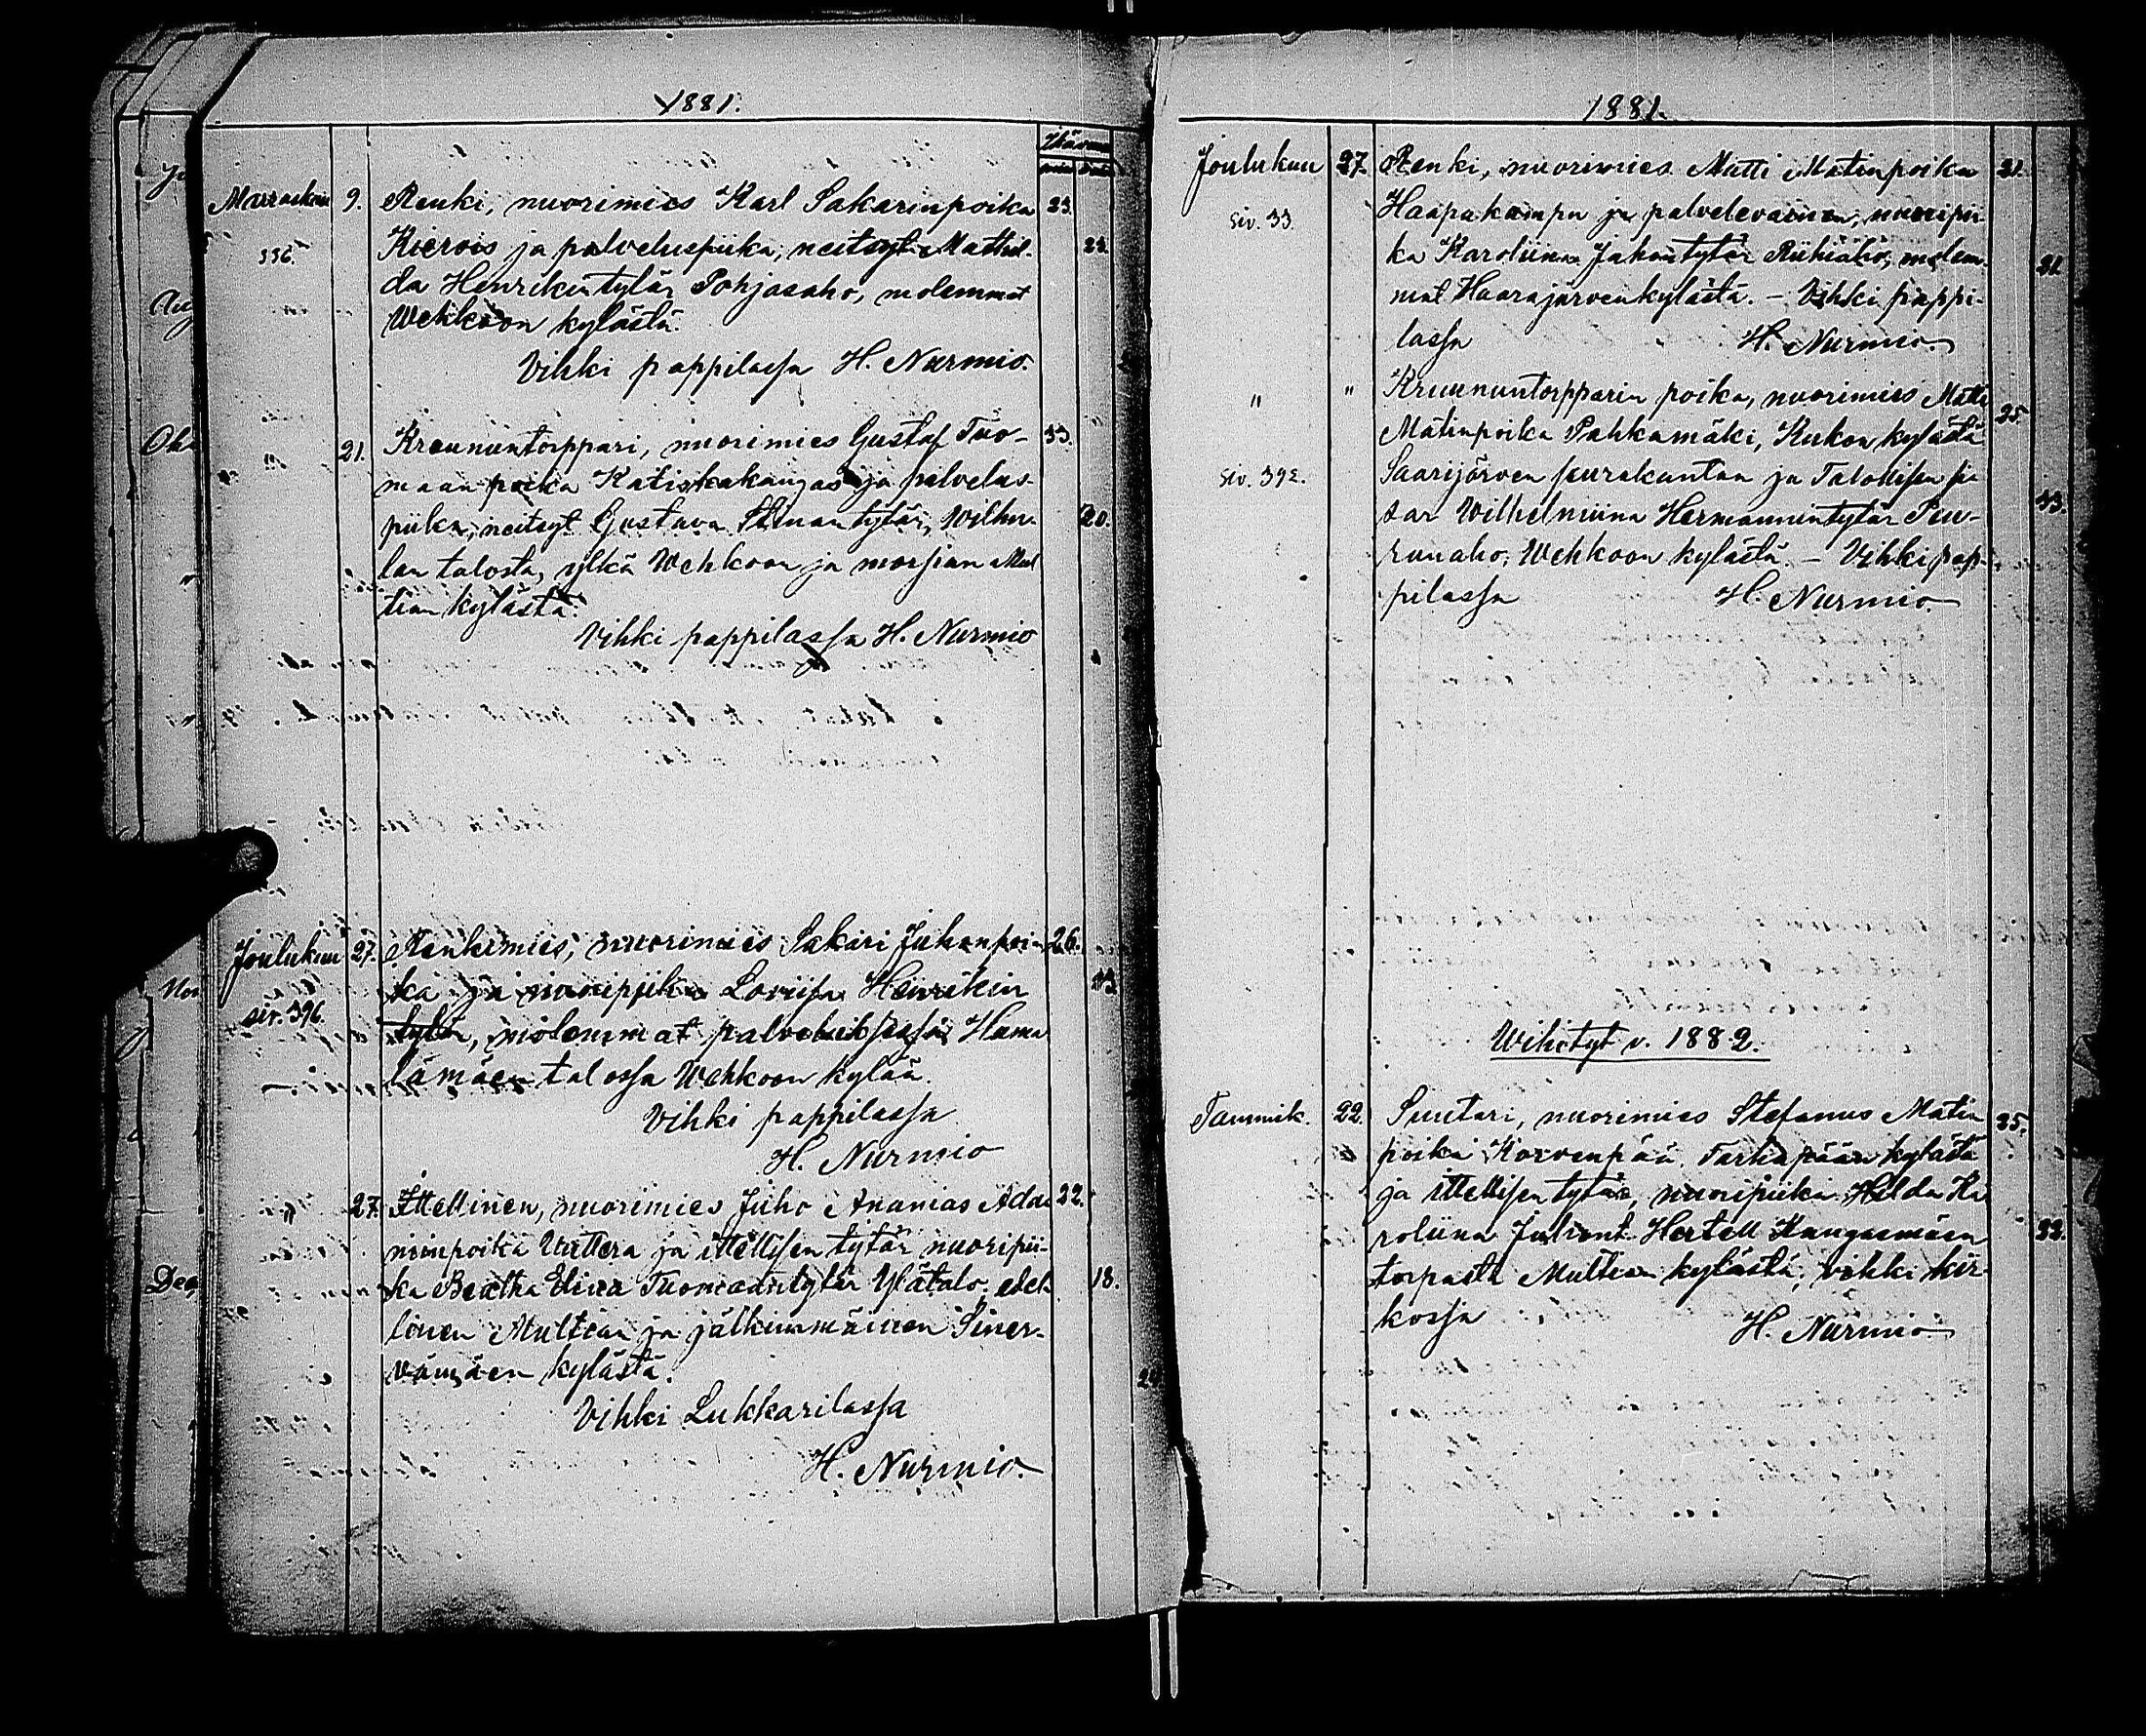 1881.
Marraskuu 9. Renki, nuorimies Karl Sakarinpoika 23.
336. Kierois ja palveluspiika, neitsyt Mathil-
da Henrikintytär Pohjasaho, molemmat
Wehkoon kylästä.
Vihki pappilassa H. Nurmio.
" 21. Kruununtorppari, nuorimies Gustaf Tuo- 33.
maanpoika Katiskakangas ja palvelus-
piika, neitsyt Gustava tytär, Wilhu- 20.
lan talosta, ylkä Wehkoon ja morsian Mul
tian kylästä.
Vihki pappilassa H. Nurmio
Joulukuu 27. Renkimies, nuorimies Sakari Juhonpoi- 26.
ka ja nuoripiika Loviisa Henrikin
siv. 396. tytär, molemmat palveluksessa Hama
lämäen talossa Wehkoon kylää.
Vihki pappilassa
H. Nurmio
" 27. Ittellinen, nuorimies Juho Ananias Ada 22.
minpoika ja ittellisen tytär nuoripii-
ka Bertha Elina Tuomaantytär Ylätalo, edel 18.
linen Multian ja jälkimmäinen Siner-
vämäen kylästä.
Vihki Lukkarilassa
H. Nurmio.
1881.
Joulukuu 27. Renki, nuorimies Matti Matinpoika 21.
siv. 33. Haapakampu ja palvelevainen, nuoripii-
ka Karoliina Juhontytär Riihiaho, molem- 21.
mat Haarajärven kylästä. – Vihki pappi-
lassa H. Nurmio.
" " Kruununtorpparin poika, nuorimies Matti
Matinpoika Pahkamäki, Kukon kylästä 25.
siv. 392. Saarijärven seurakuntaa ja Talollisen
tar Wilhelmiina Hermannintytär Puu- 43.
runaho, Wehkoon kylästä. – Vihki pap-
pilassa H. Nurmio.
Wihityt v. 1882.
Tammik. 22. Suutari, nuorimies Stefanus Matin 25.
poika Korvenpää Tarhapään kylästä
ja ittellisen tytär, nuoripiika Hilda Ka
roliina Juhont. Hertell Kangasmäen 22.
torpasta Multian kylästä, vihki kir-
kossa H. Nurmio